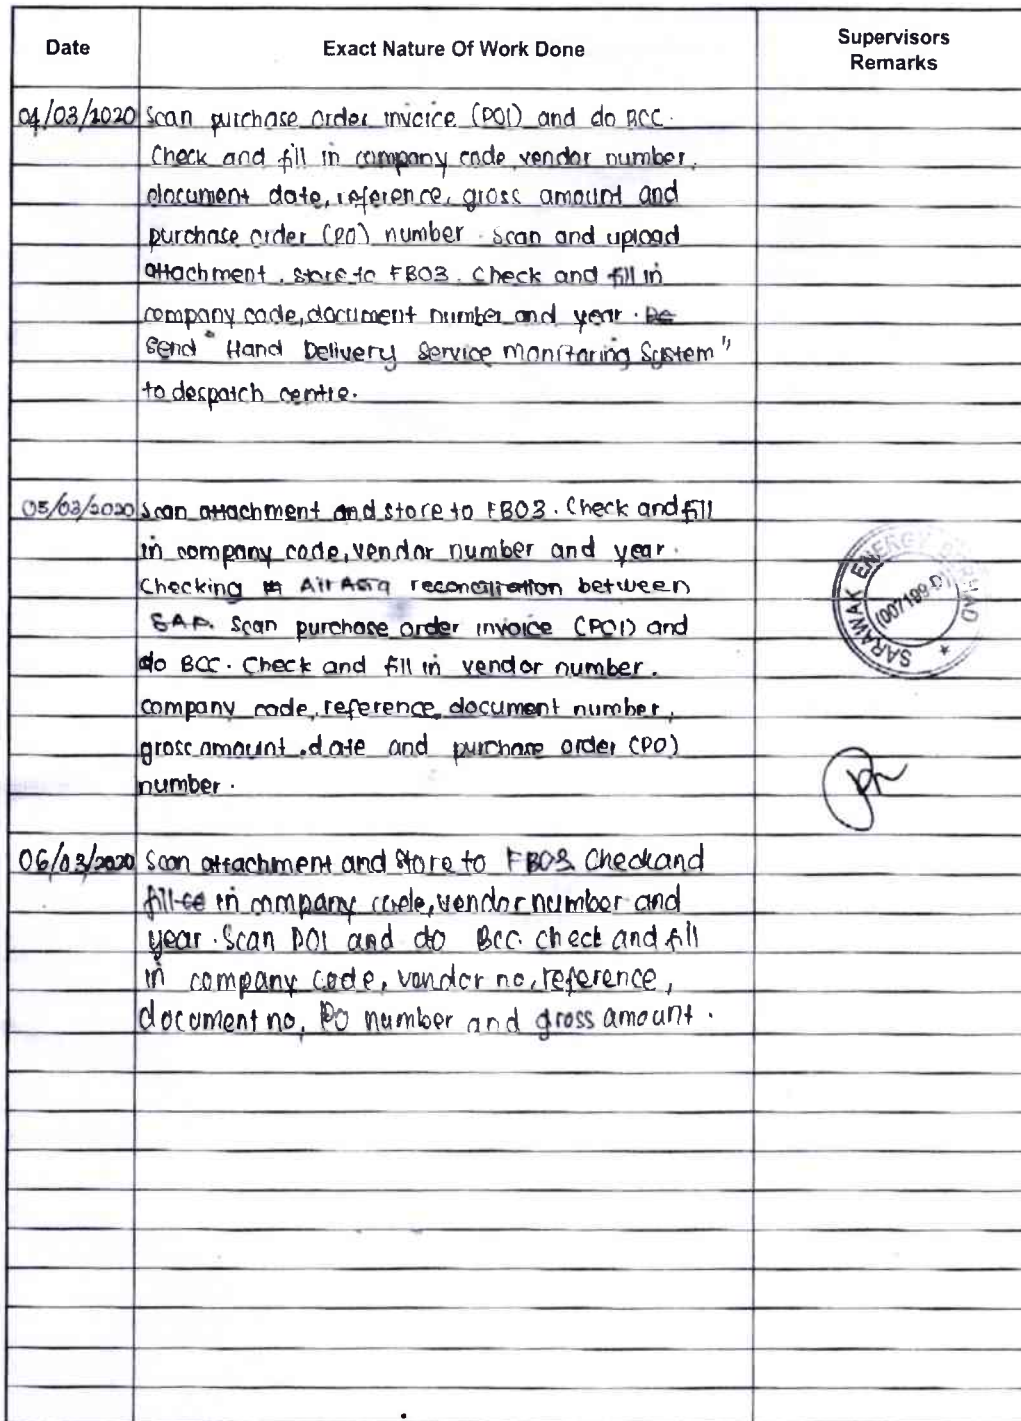 Date
Exact Nature Of Work Done
Supervisors
Remarks
04/03/2020 Scan purchase order invoice (POI) and do BCC.
Check and fill in company code, vendor number,
document date, reference, gross amount and
purchase order (PO) number. Scan and upload
attachment. store to FB03. Check and fill in
company code, document number and year.
Send "Hand Delivery Service Monitoring System"
to despatch centre.
05/03/2020 Scan attachment and store to FB03. Check and fill
in company code, vendor number and year.
Checking AirAsia reconciliation between
SAP. Scan purchase order invoice (POI) and
do BCC. Check and fill in vendor number,
company code, reference, document number,
gross amount, date and purchase order (PO)
number.
SARAWAK ENERGY BERHAD
(007199-D)
06/03/2020 Scan attachment and store to FB03. Check and
fill in company code, vendor number and
year. Scan POI and do BCC. check and fill
in company code, vendor no, reference,
document no, PO number and gross amount.